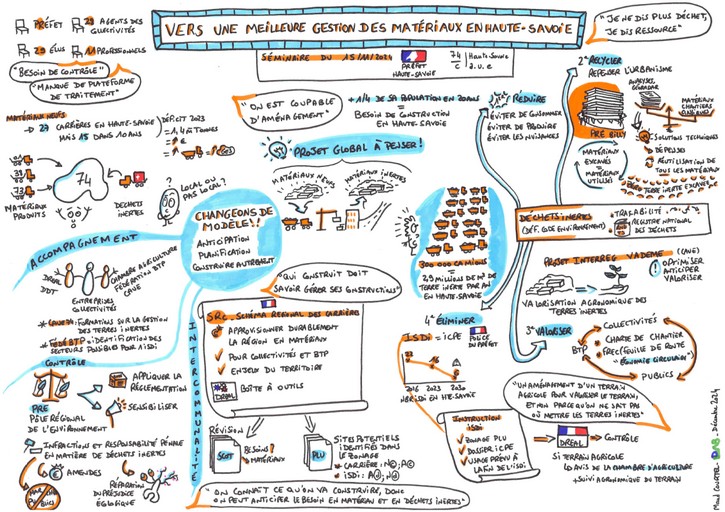 VERS UNE MEILLEURE GESTION DES MATÉRIAUX EN HAUTE-SAVOIE
SÉMINAIRE DU 15/11/2024
PRÉFET
HAUTE-SAVOIE
74
HAUTE-SAVOIE
PRÉFET
AGENTS DES
COLLECTIVITÉS
ÉLUS
PROFESSIONNELS
"BESOIN DE CONTRÔLE"
"MANQUE DE PLATEFORME
DE TRAITEMENT"
"JE NE DIS PLUS DÉCHET,
JE DIS RESSOURCE"
MATÉRIAUX NEUFS
CARRIÈRES EN HAUTE-SAVOIE
MAIS 15 DANS 10 ANS
74
73
MATÉRIAUX
PRODUITS
DECHETS
INERTES
LOCAL OU
PAS LOCAL?
"ON EST COUPABLE
D'AMÉNAGEMENT"
+1/4 DE SA POPULATION EN 20 ANS
=
BESOIN DE CONSTRUCTION
EN HAUTE-SAVOIE
PROJET GLOBAL À PENSER!
MATÉRIAUX NEUFS
MATÉRIAUX INERTES
RÉDUIRE
ÉVITER DE CONSOMMER
ÉVITER DE PRODUIRE
ÉVITER LES NUISANCES
2° RECYCLER
REPENSER L'URBANISME
MATÉRIAUX
CHANTIERS
PRÉ BILLY
MATÉRIAUX
EXCAVÉS =
MATÉRIAUX
UTILISÉS
SOLUTIONS TECHNIQUES
DÉPENSES
RÉUTILISATION DE
TOUS LES MATÉRIAUX
ZÉRO TERRE INERTE EXCAVÉE
CHANGEONS DE
MODÈLE!!
ANTICIPATION
PLANIFICATION
CONSTRUIRE AUTREMENT
300 000 CAMIONS
=
2,9 MILLIONS DE M³ DE
TERRE INERTE PAR AN
EN HAUTE-SAVOIE
DÉCHETS INERTES
(DÉF. CODE ENVIRONNEMENT)
TRAÇABILITÉ
REGISTRE NATIONAL
DES DÉCHETS
ACCOMPAGNEMENT
DREAL
DDT
CHAMBRE AGRICULTURE
FÉDÉRATION BTP
CAUE
ENTREPRISES
COLLECTIVITÉS
FORMATIONS SUR LA GESTION
DES TERRES INERTES
IDENTIFICATION DES
SECTEURS POSSIBLES POUR ISDI
CONTRÔLE
APPLIQUER LA
RÉGLEMENTATION
SENSIBILISER
PRE
PÔLE RÉGIONAL
DE L'ENVIRONNEMENT
INFRACTIONS ET RESPONSABILITÉ PÉNALE
EN MATIÈRE DE DÉCHETS INERTES
AMENDES
RÉPARATION
DU PRÉJUDICE
ÉCOLOGIQUE
INTERCOMMUNALITÉ
"QUI CONSTRUIT DOIT
SAVOIR GÉRER SES CONSTRUCTIONS"
SRC. SCHÉMA RÉGIONAL DES CARRIÈRES
APPROVISIONNER DURABLEMENT
LA RÉGION EN MATÉRIAUX
POUR COLLECTIVITÉS ET BTP
ENJEUX DU TERRITOIRE
DREAL
BOÎTE À OUTILS
RÉVISION
SCOT
BESOINS?
MATÉRIAUX
PLU
SITES POTENTIELS
IDENTIFIÉS DANS
LE ZONAGE
"ON CONNAÎT CE QU'ON VA CONSTRUIRE, DONC
ON PEUT ANTICIPER LE BESOIN EN MATÉRIAU ET EN DÉCHETS INERTES"
4° ÉLIMINER
ISDI = ICPE
POLICE
DU PRÉFET
2016 2023 2030
NB ISDI EN HTE-SAVOIE
INSTRUCTION
ISDI
ZONAGE PLU
DOSSIER ICPE
USAGE PRÉVU À
LA FIN DE L'ISDI
OPTIMISER
ANTICIPER
VALORISER
VALORISATION AGRONOMIQUE DES
TERRES INERTES
3° VALORISER
COLLECTIVITÉS
BTP
CHARTE DE CHANTIER
(FEUILLE DE ROUTE
"ÉCONOMIE CIRCULAIRE")
PUBLICS
"UN AMÉNAGEMENT D'UN TERRAIN
AGRICOLE POUR VALORISER LE TERRAIN,
ET NON PARCE QU'ON NE SAIT PAS
OÙ METTRE LES TERRES INERTES"
DREAL
CONTRÔLE
SI TERRAIN AGRICOLE
AVIS DE LA CHAMBRE D'AGRICULTURE
+SUIVI AGRONOMIQUE DU TERRAIN
Décembre 2024